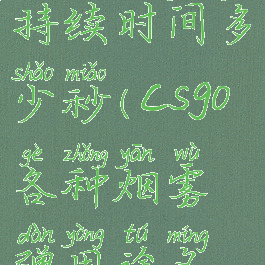 持续时间多
shǎo miǎo
少秒(csgo
gè zhǒng yān wù
各种烟雾
dàn yòng tú míng